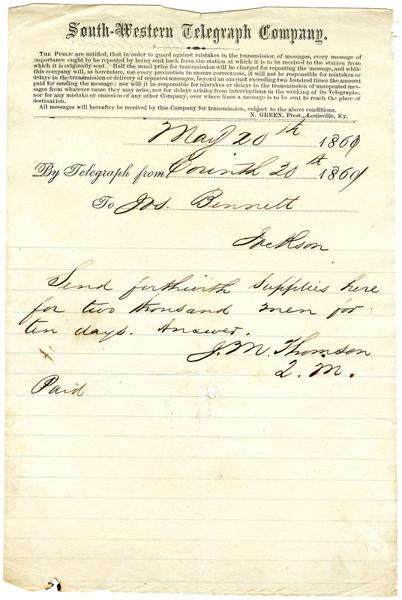 South-Western Telegraph Company.
THE PUBLIC are notified, that in order to guard against mistakes in the transmission of messages, every message of
importance ought to be repeated by being sent back from the station at which it is to be received to the station from
which it is originally sent. Half the usual price for transmission will be charged for repeating the message, and while
this company will, as heretofore, use every precaution to ensure correctness, it will not be responsible for mistakes or
delays in the transmission or delivery of repeated messages, beyond an amount exceeding two hundred times the amount
paid for sending the message; nor will it be responsible for mistakes or delays in the transmission of unrepeated mes-
sages from whatever cause they may arise, nor for delays arising from interruptions in the working of its Telegraphs,
nor for any mistake or omission of any other Company, over whose lines a message is to be sent to reach the place of
destination.
All messages will hereafter be received by this Company for transmission, subject to the above conditions.
N. GREEN, Prest., Louisville, Ky.
May 20th 1861
By Telegraph from Corinth 20th 1861
To Jos. Bennett
Jackson
Send forthwith supplies here
for two thousand men for
ten days. Answer.
J. M. Thomson
Q. M.
Paid